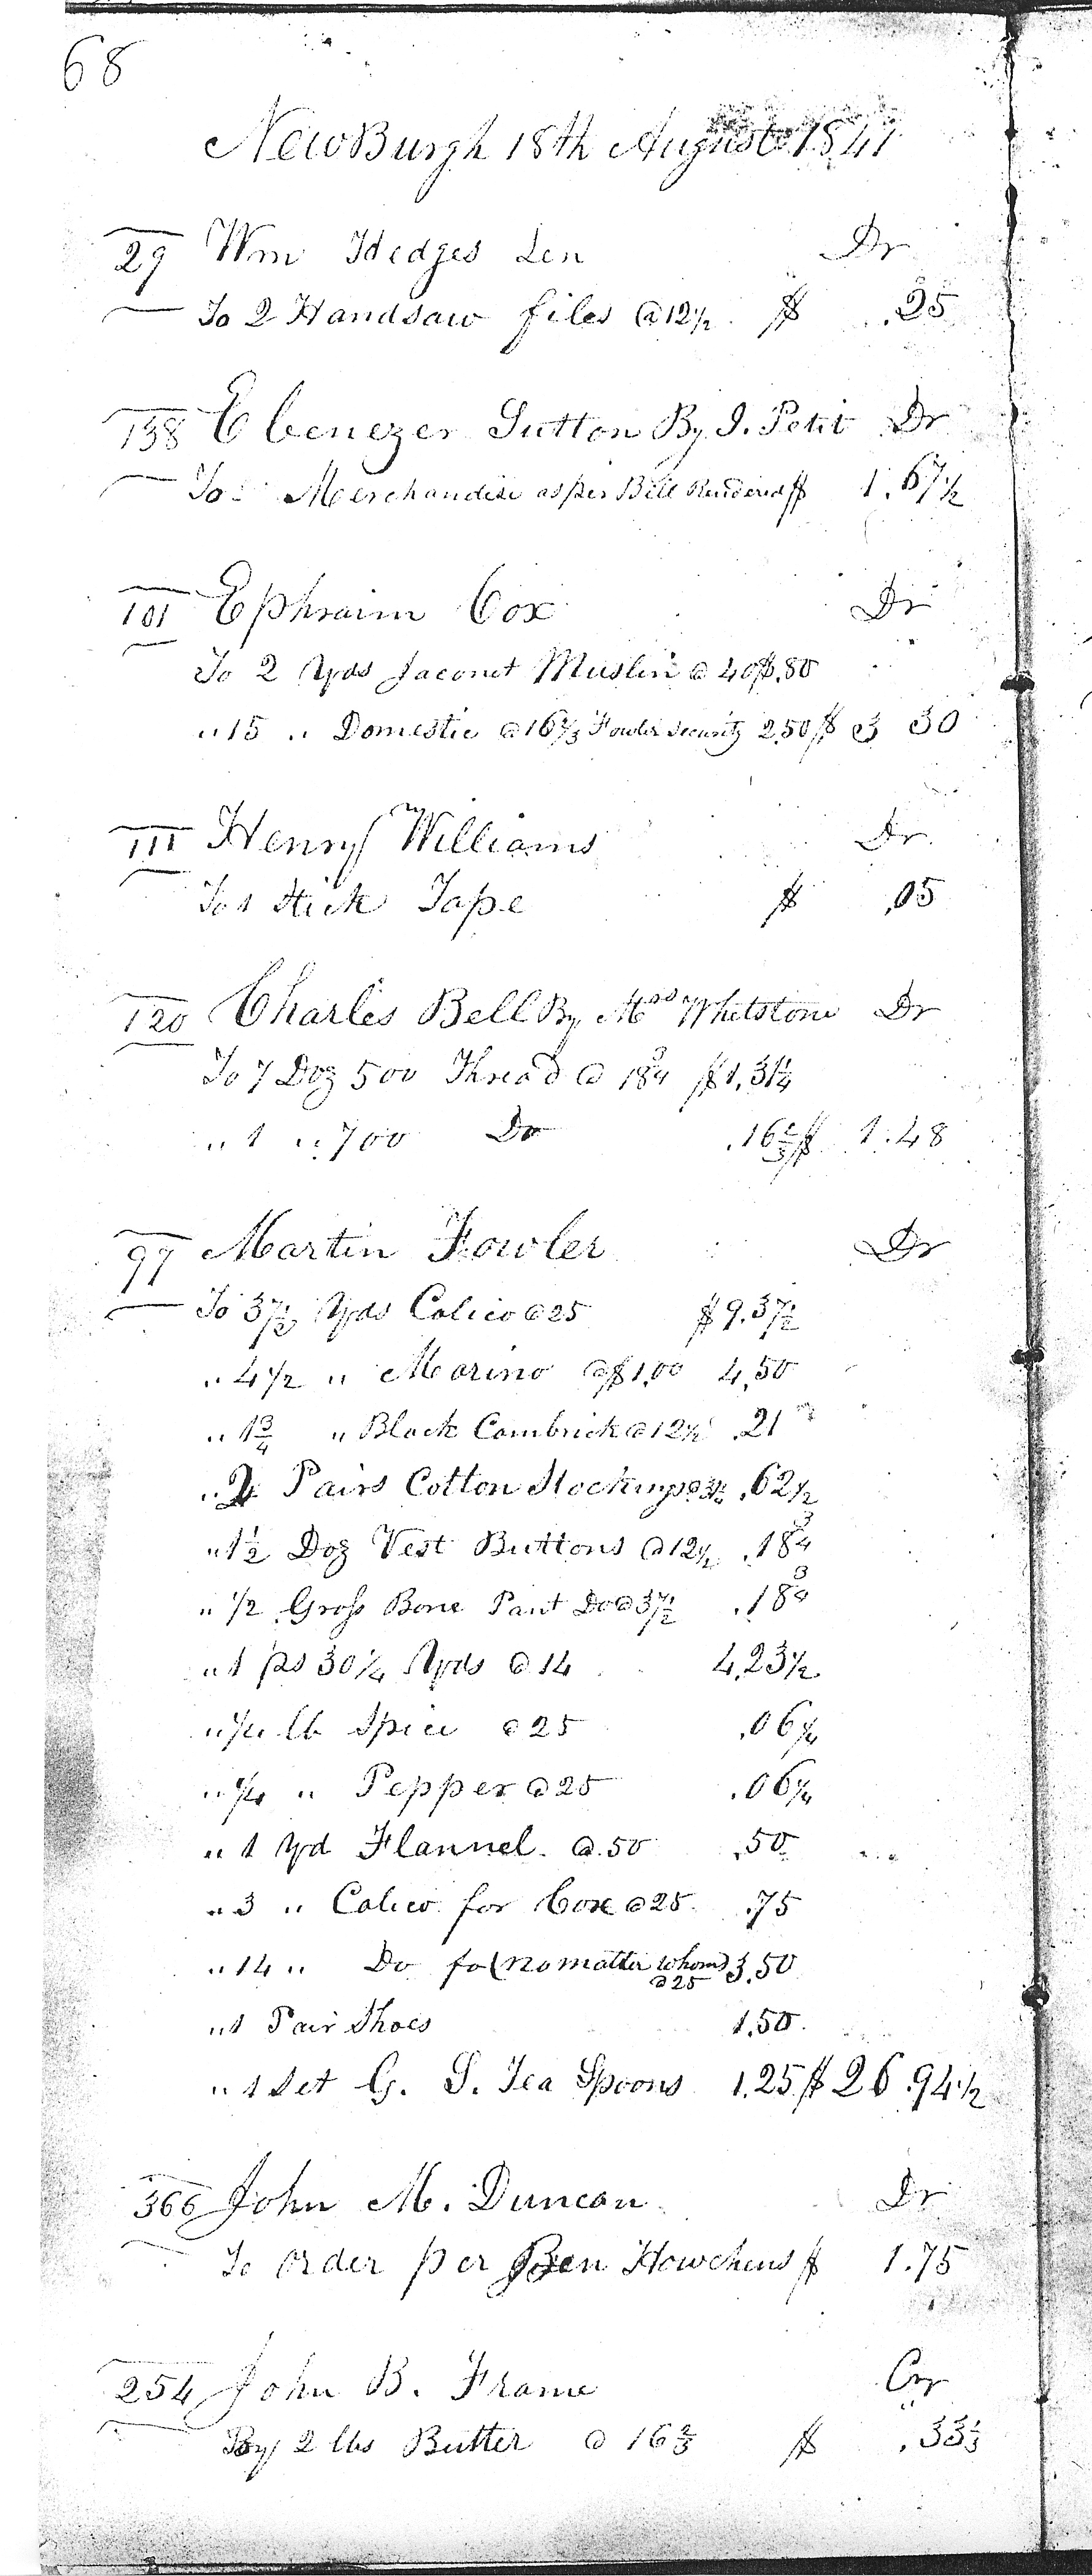 68
NewBurgh 18th August 1841
29 Wm Hedges Sen Dr
To 2 Handsaw files @ 12½ $ .25
138 Ebenezer Sutton By I. Petit Dr
To Merchandise as per Bill Rendered $ 1.67½
101 Ephraim Cox Dr
To 2 Yds Jaconet Muslin @ 40 $.80
" 15 " Domestic @ 16⅔ Fowler Security 2.50 $ 3 30
111 Henry Williams Dr
To 1 Stick Tape $ .05
120 Charles Bell By Mrs Whetstone Dr
To 7 Doz 500 Thread @ 18¾ $1.31¼
" 1 " 700 Do .16⅔ $ 1.48
97 Martin Fowler Dr
To 37½ Yds Calico @ 25 $9.37½
" 4½ " Marino @ $1.00 4.50
" 1¾ " Black Cambrick @ 12½ .21
" 2 Pairs Cotton Stockings @ 31¼ .62½
" 1½ Doz Vest Buttons @ 12½ .18¾
" ½ Gross Bone Pant Do @ 37½ .18¾
" 1 ps 30¼ Yds @ 14 4.23½
" ¼ lb Spice @ 25 .06¼
" ¼ " Pepper @ 25 .06¼
" 1 Yd Flannel @ .50 .50
" 3 " Calico for Cox @ 25 .75
" 14 " Do fo (no matter whom) 3.50
@ 25
" 1 Pair Shoes 1.50
" 1 Set G. S. Tea Spoons 1.25 $ 26.94½
366 John M. Duncan Dr
To order per Ben Howchens $ 1.75
254 John B. Frame Cr
By 2 lbs Butter @ 16⅔ $ .33⅓